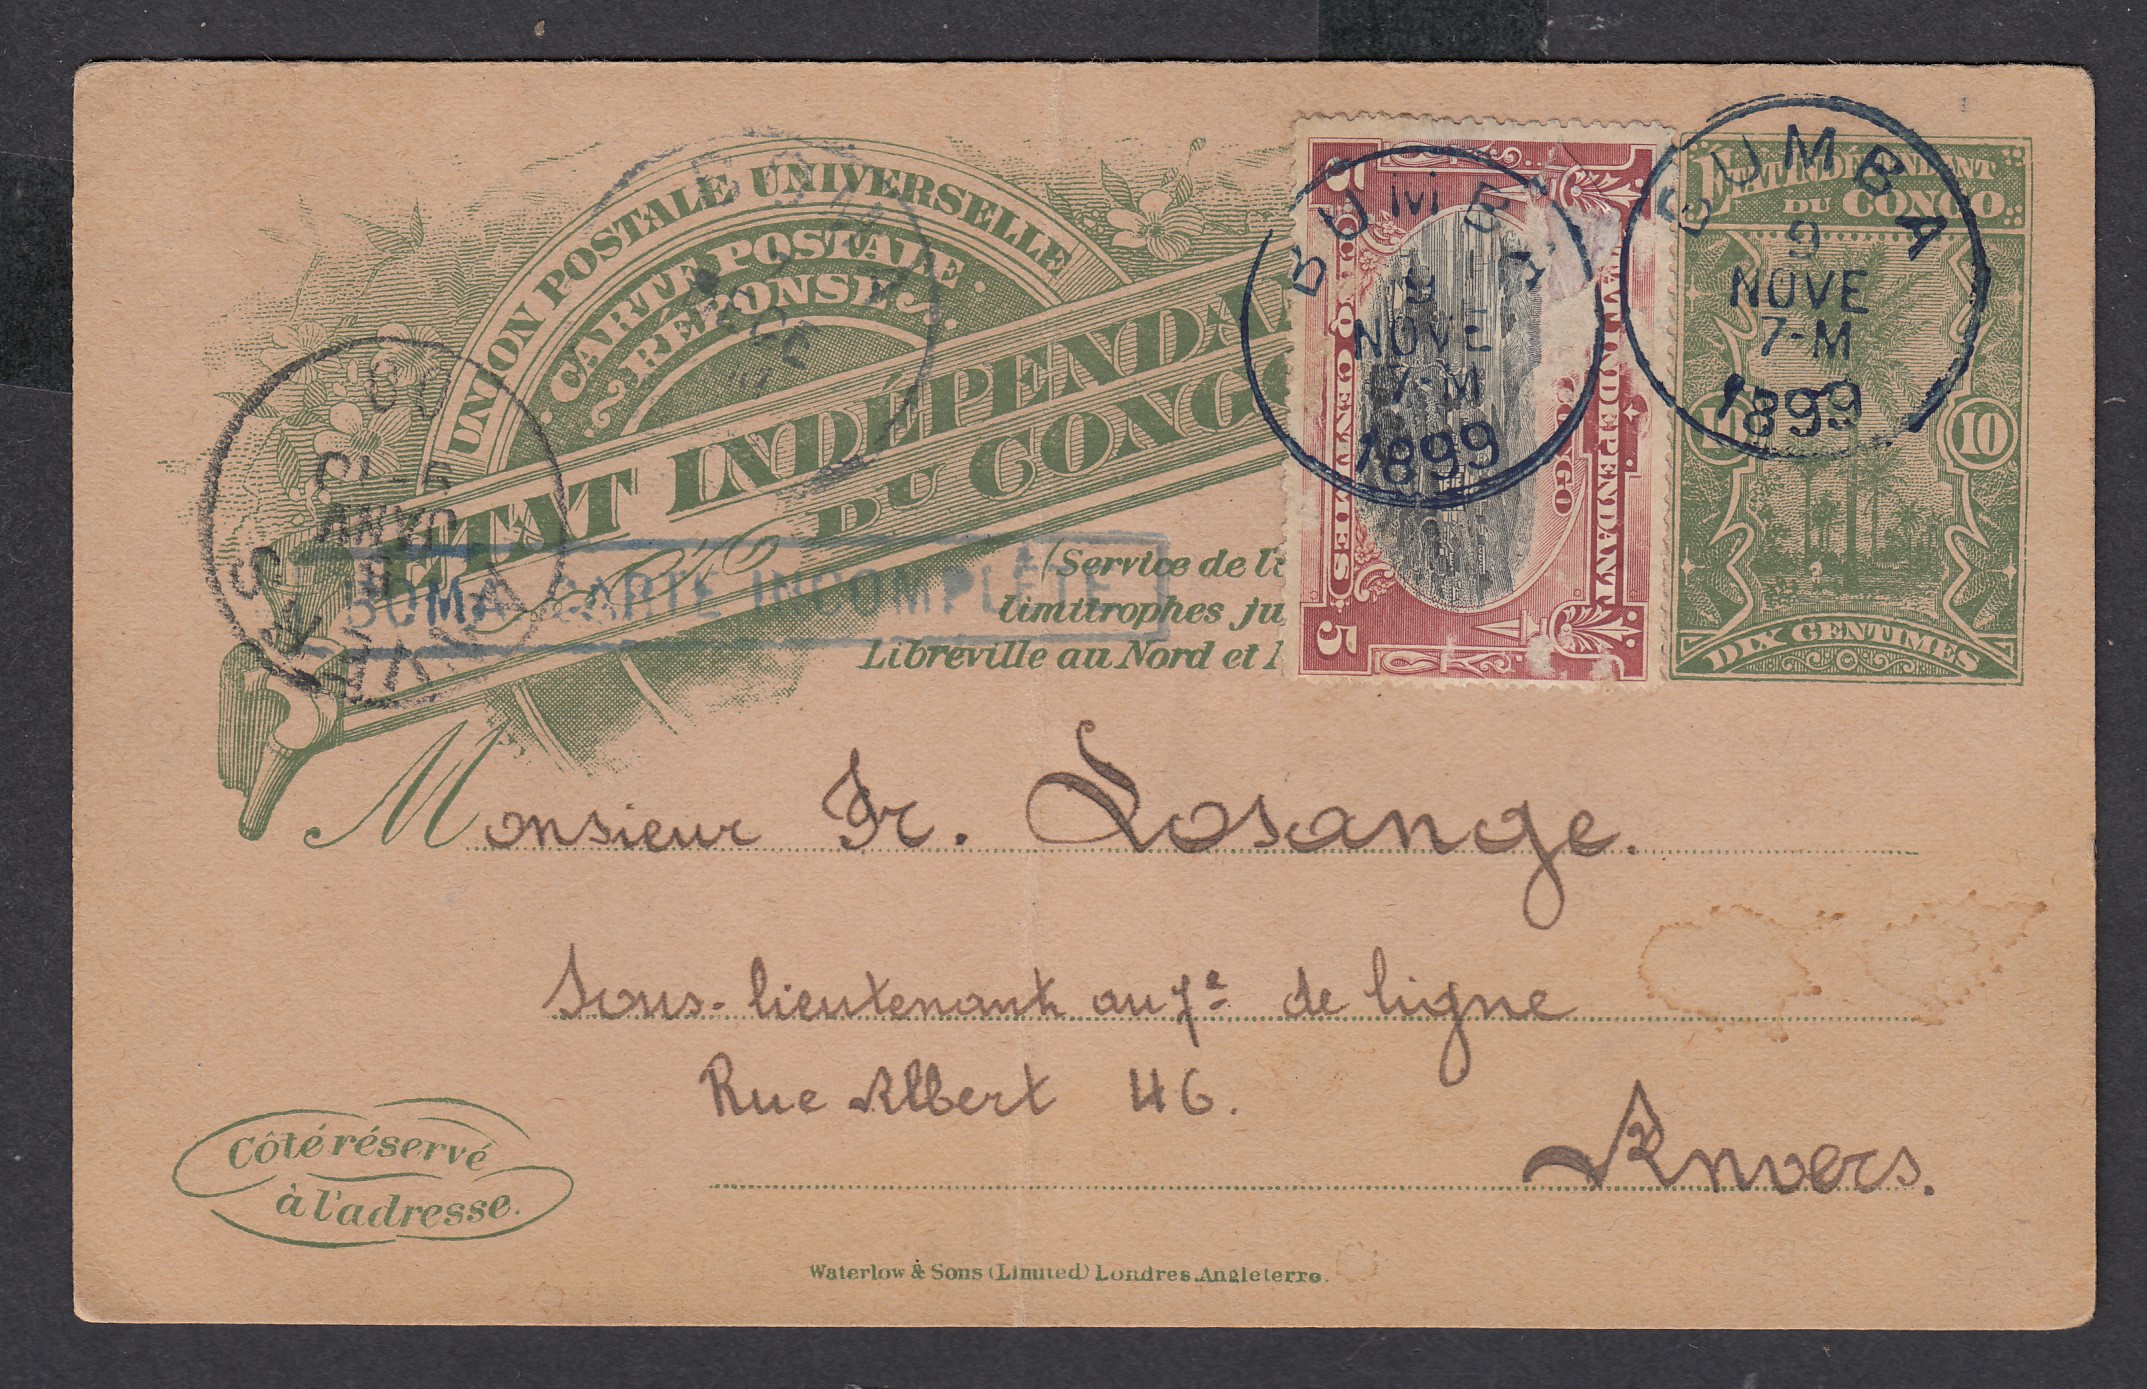 UNION POSTALE UNIVERSELLE
CARTE POSTALE
RÉPONSE
ÉTAT INDÉPENDA
DU CONGO
(Service de l'i
limitrophes ju
Libreville au Nord et
BOMA
DECE
ANVERS
9-10
JANV
BOMA CARTE INCOMPLÈTE
ÉTAT INDÉPENDANT
CONGO
5
5
BUMBA
9
NOVE
7-M
1899
ÉTAT INDÉPENDANT
DU CONGO
10
10
DIX CENTIMES
BUMBA
9
NOVE
7-M
1899
Monsieur Fr. Losange.
Sous-lieutenant au 7e de ligne
Rue Albert 46.
Anvers.
Côté réservé
à l'adresse.
Waterlow & Sons (Limited) Londres. Angleterre.